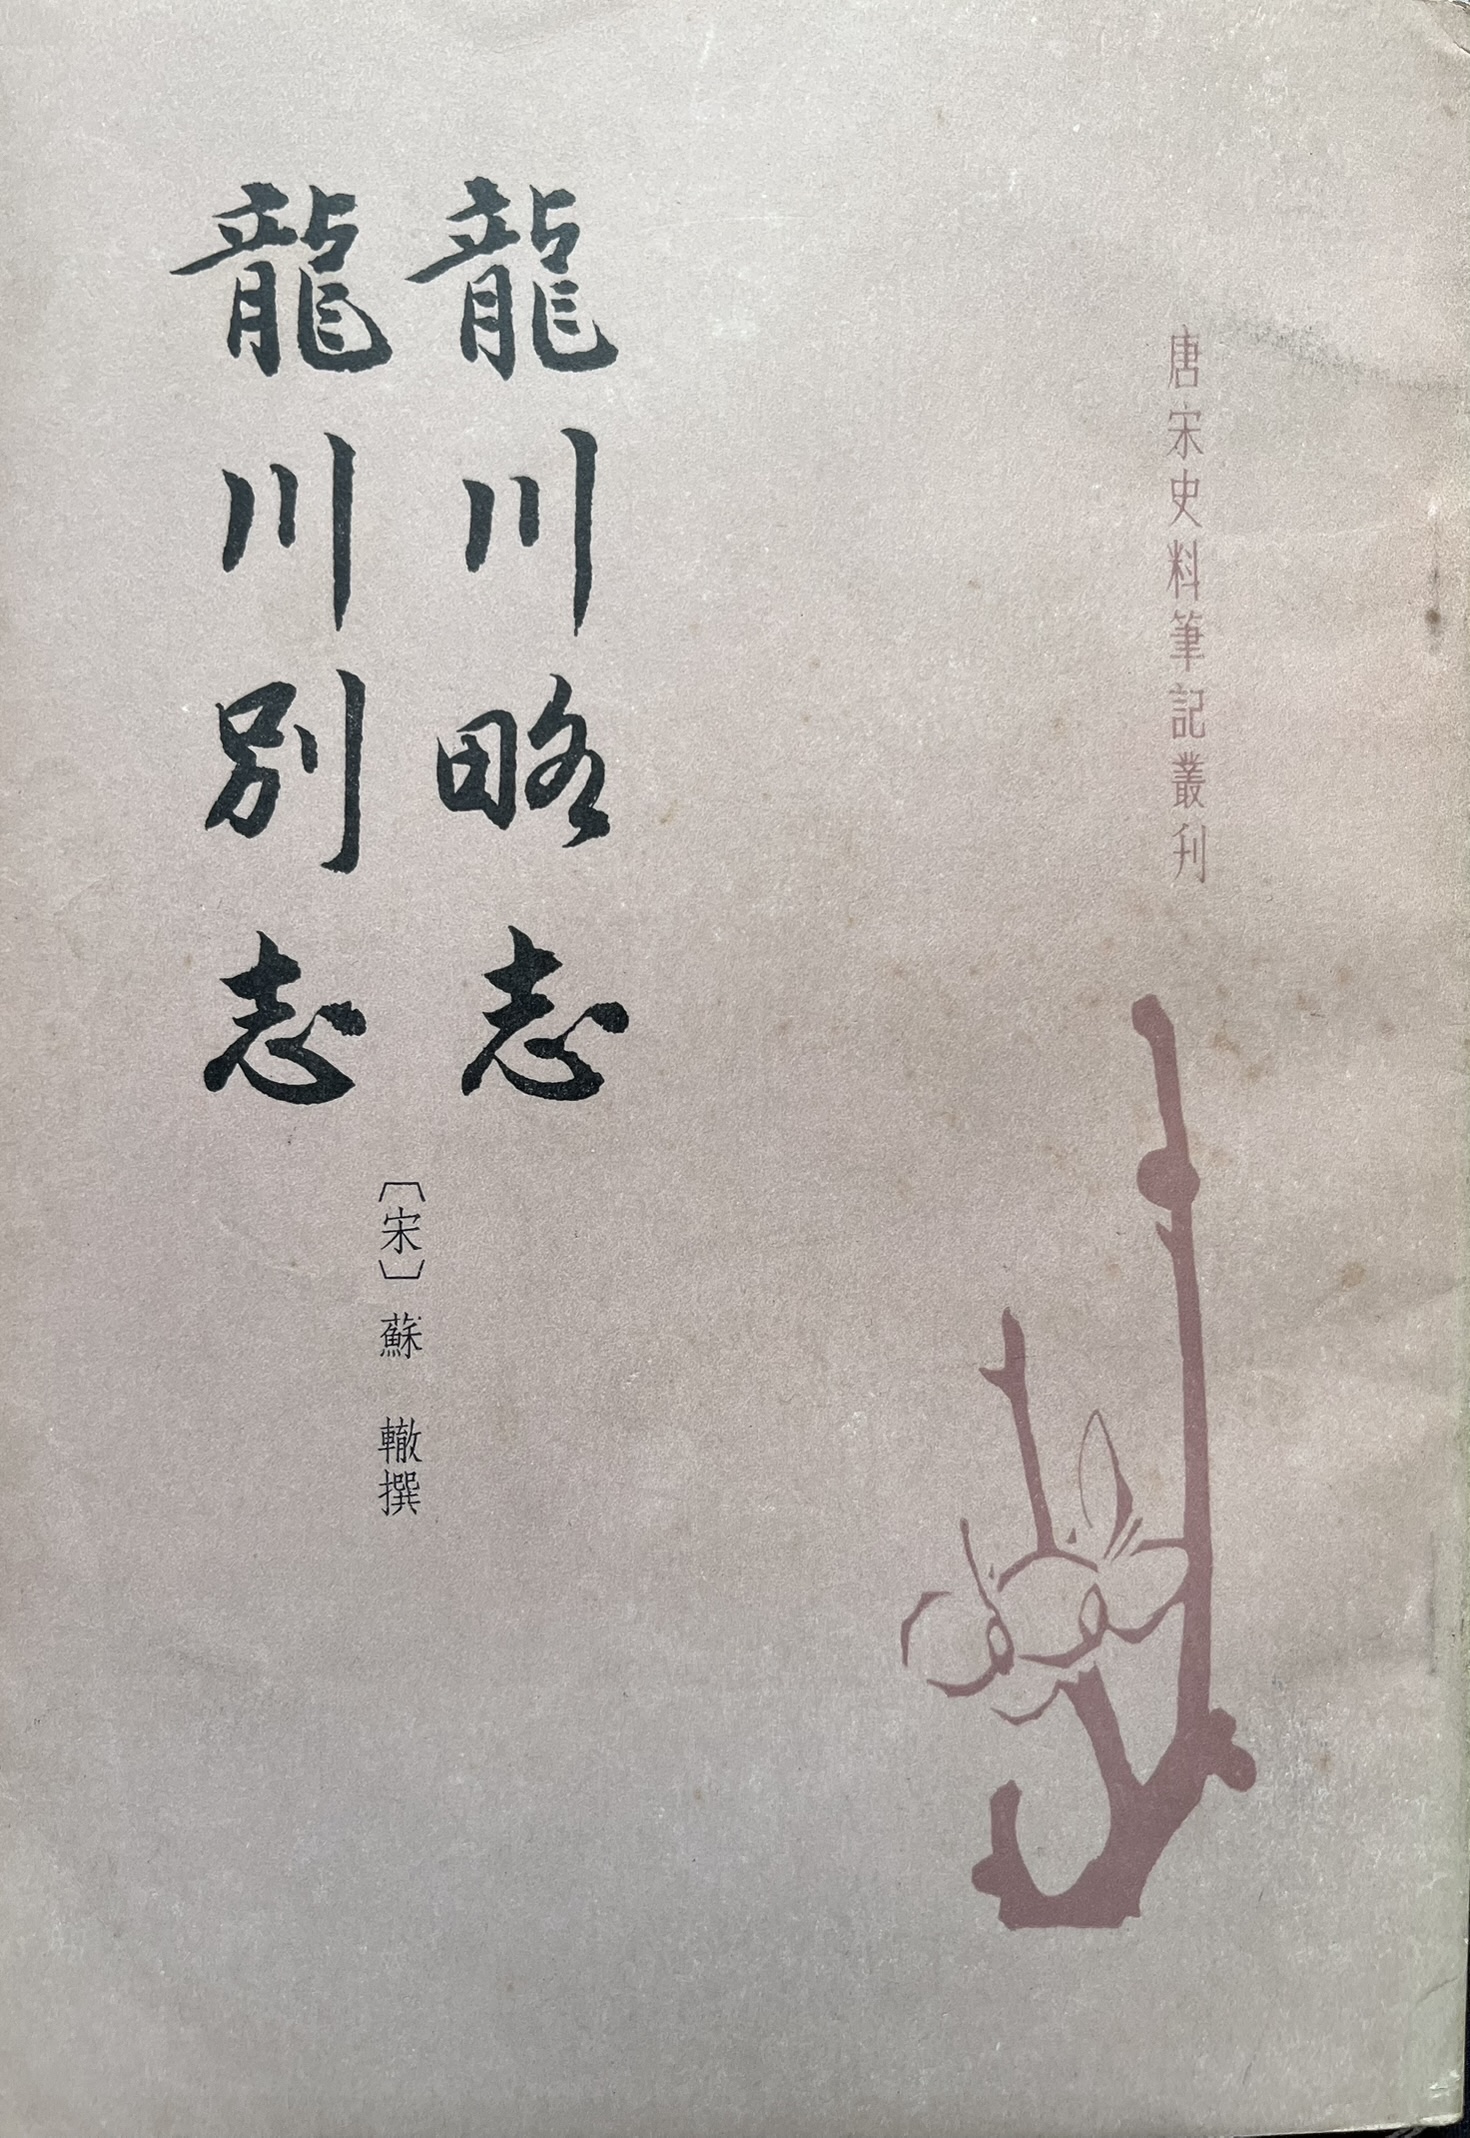 唐宋史料筆記叢刊
龍川略志
龍川別志
〔宋〕蘇 轍撰